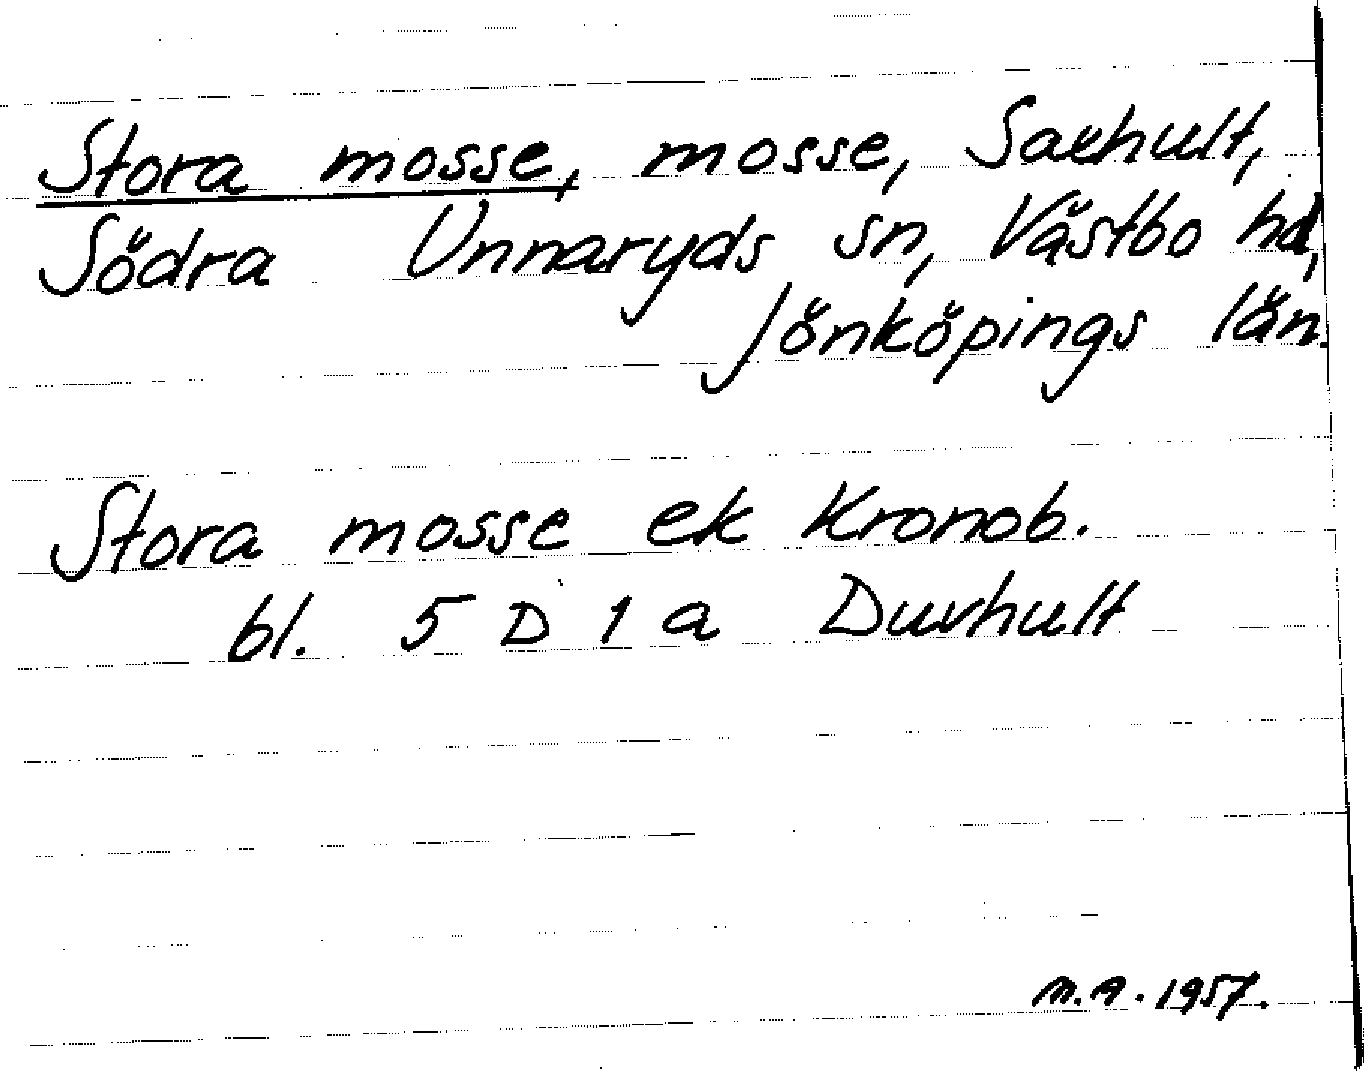 Stora mosse, mosse, Saxhult,
Södra Unnaryds sn, Västbo hd,
Jönköpings län.
Stora mosse ek Kronob.
bl. 5 D 1 a Duvhult
M.A. 1957.